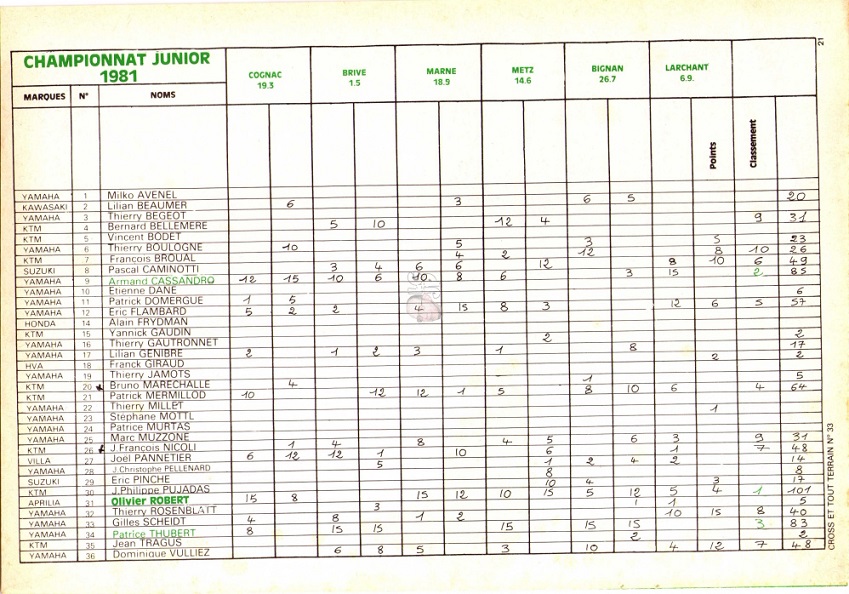 21
CHAMPIONNAT JUNIOR
1981
COGNAC 19.3 BRIVE 1.5 MARNE 18.9 METZ 14.6 BIGNAN 26.7 LARCHANT 6.9.
MARQUES N° NOMS Points Classement
YAMAHA 1 Milko AVENEL
KAWASAKI 2 Lilian BEAUMER 6 3 6 5 20
YAMAHA 3 Thierry BEGEOT
KTM 4 Bernard BELLEMERE 5 10 12 4 9 31
KTM 5 Vincent BODET
YAMAHA 6 Thierry BOULOGNE 10 5 3 5 23
KTM 7 François BROUAL 4 2 12 8 10 26
SUZUKI 8 Pascal CAMINOTTI 3 4 6 6 12 8 10 6 49
YAMAHA 9 Armand CASSANDRO 12 15 10 6 10 8 6 3 15 2 85
YAMAHA 10 Etienne DANE
YAMAHA 11 Patrick DOMERGUE 1 5 6
YAMAHA 12 Eric FLAMBARD 5 2 2 4 15 8 3 12 6 5 57
HONDA 14 Alain FRYDMAN
KTM 15 Yannick GAUDIN
YAMAHA 16 Thierry GAUTRONNET 2 2
YAMAHA 17 Lilian GENIBRE 2 1 2 3 1 8 17
HVA 18 Franck GIRAUD 2 2
YAMAHA 19 Thierry JAMOTS
KTM 20 Bruno MARECHALLE 4 1 5
KTM 21 Patrick MERMILLOD 10 12 12 1 5 8 10 6 4 64
YAMAHA 22 Thierry MILLET 1
YAMAHA 23 Stéphane MOTTL
YAMAHA 24 Patrice MURTAS
YAMAHA 25 Marc MUZZONE
KTM 26 J.François NICOLI 1 4 8 4 5 6 3 9 31
VILLA 27 Joël PANNETIER 6 12 12 1 10 6 1 7 48
YAMAHA 28 J.Christophe PELLENARD 5 1 2 4 2 14
SUZUKI 29 Eric PINCHE 8 8
KTM 30 J.Philippe PUJADAS 10 4 3 17
APRILIA 31 Olivier ROBERT 15 8 15 12 10 15 5 12 5 4 1 101
YAMAHA 32 Thierry ROSENBLATT 3 1 1 5
YAMAHA 33 Gilles SCHEIDT 4 8 1 2 10 15 8 40
YAMAHA 34 Patrice THUBERT 8 15 15 15 15 15 3 83
KTM 35 Jean TRAGUS 2 2
YAMAHA 36 Dominique VULLIEZ 6 8 5 3 10 4 12 7 48
CROSS ET TOUT TERRAIN N° 33